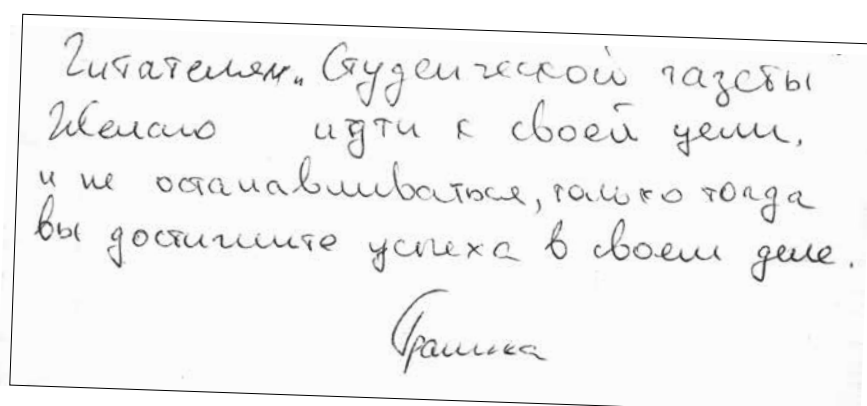 Читателям „Студенческой газеты
Желаю идти к своей цели,
и не останавливаться, только тогда
вы достигните успеха в своем деле.